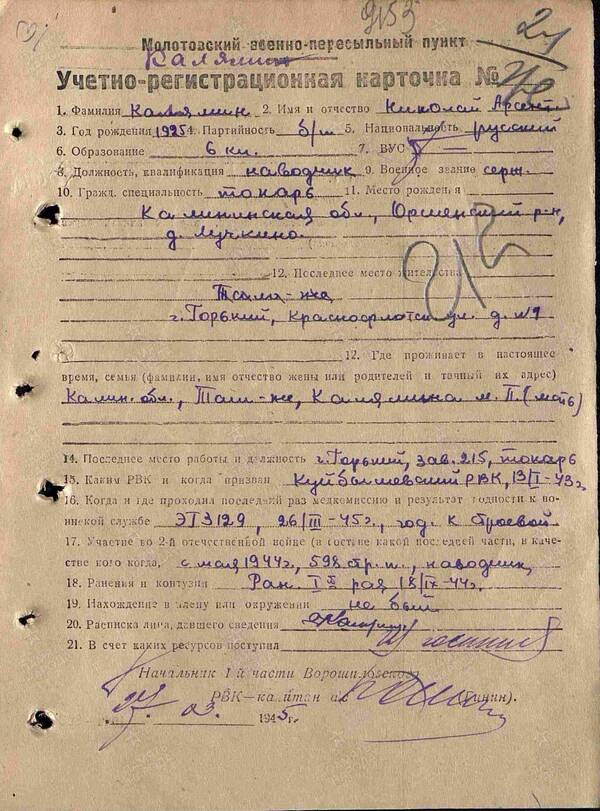 9153
Молотовский военно-пересыльный пункт
21
Калямин
Учетно-регистрационная карточка №
1. Фамилия Калямин 2. Имя и отчество Николай Арсент
3. Год рождения 1925 4. Партийность б/п 5. Национальность русский
6. Образование 6 кл. 7. ВУС —
8. Должность, квалификация наводчик 9. Военное звание серж.
10. Гражд. специальность токарь 11. Место рождения
Калининская обл., р-н,
д. Лучкино.
212
12. Последнее место жительства
г. Горький, Краснофлотск ул. д. №1
12. Где проживает в настоящее
время, семья (фамилии, имя отчество жены или родителей и точный их адрес)
Калин. обл., Там-же, Калямина М. П. (мать)
14. Последнее место работы и должность г. Горький, зав. 215, токарь
15. Каким РВК и когда призван Куйбышевский РВК, 13/I-43г.
16. Когда и где проходил последний раз медкомиссию и результат годности к во-
инской службе ЭГ 3129, 26/III-45г., год. к строевой
17. Участие во 2-й отечественной войне (в составе какой последней части, в каче-
стве кого когда, с мая 1944г., 598 стр. п., наводчик,
18. Ранения и контузии Ран. I раз 18/IX-44г.
19. Нахождение в плену или окружении не был
20. Расписка лица, давшего сведения
21. В счет каких ресурсов поступил
Начальник 1-й части Ворошиловского
РВК—капитан а/с
27. 03. 1945г.